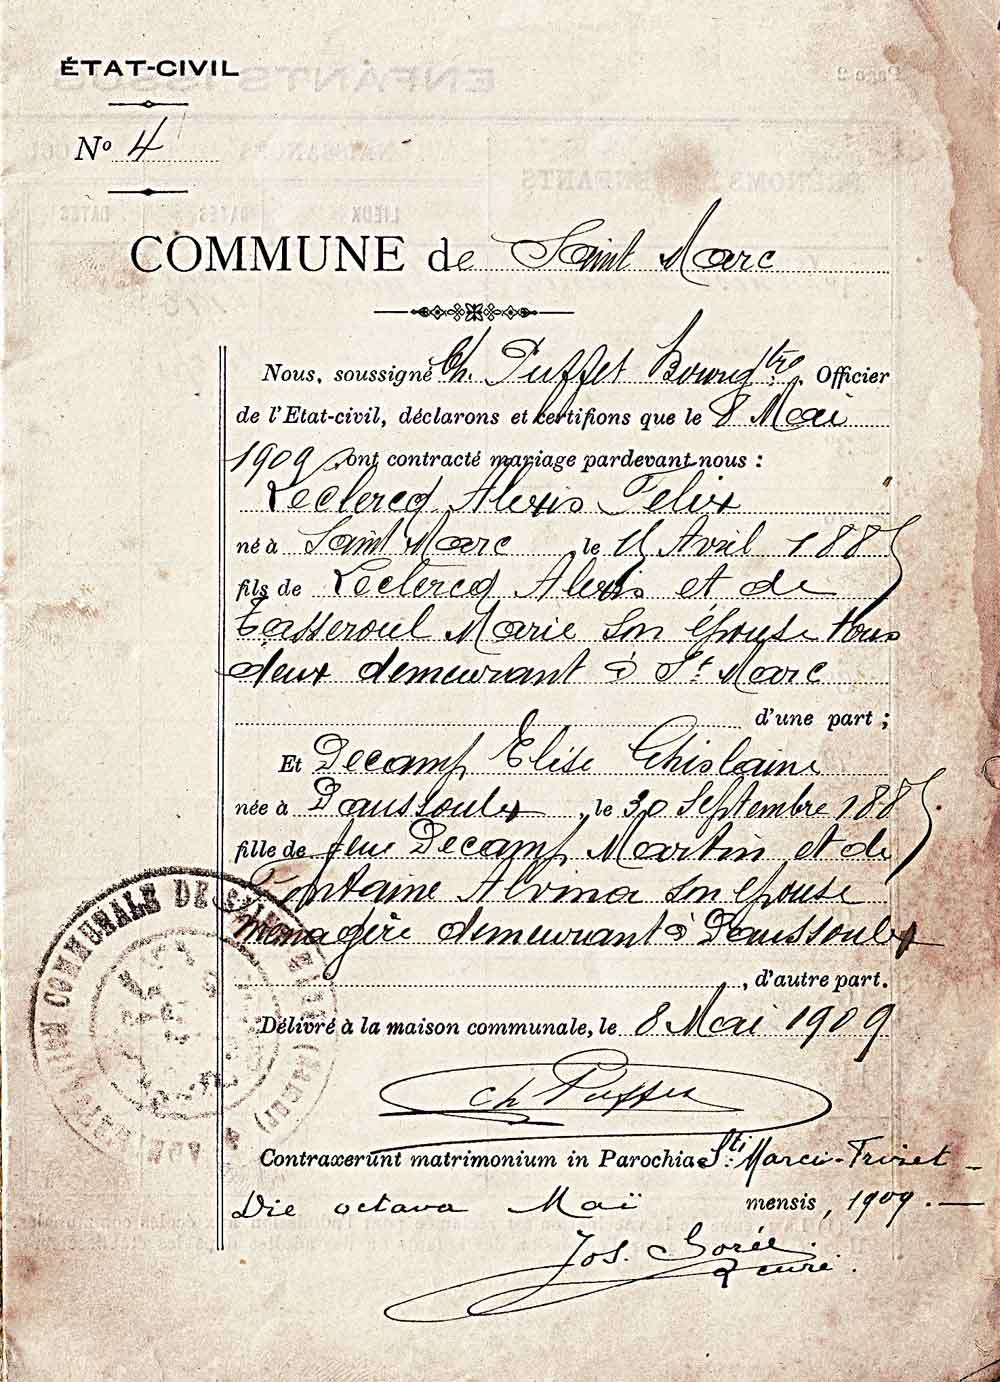 ÉTAT-CIVIL
Nº 4
COMMUNE de Saint Marc
Nous, soussigné Ch. Puffet Bourgtre, Officier
de l'Etat-civil, déclarons et certifions que le 8 Mai
1909 ont contracté mariage pardevant nous :
Leclercq Alexis Felix
né à Saint Marc, le Avril 1885
fils de Leclercq Alexis et de
Tasseroul Marie son épouse tous
deux demeurant à St. Marc
d'une part ;
Et Decamp Elise Ghislaine
née à Daussoulx, le 30 Septembre 1885
fille de feu Decamp Martin et de
Fontaine Alvina son épouse
ménagère demeurant à Daussoulx
, d'autre part.
Délivré à la maison communale, le 8 Mai 1909
Ch Puffet
Contraxerunt matrimonium in Parochia Sti Marci-Frizet
Die octava Maï mensis, 1909.
Jos. curé.
ADMINISTRATION COMMUNALE DE SAINT MARC (NAMUR)